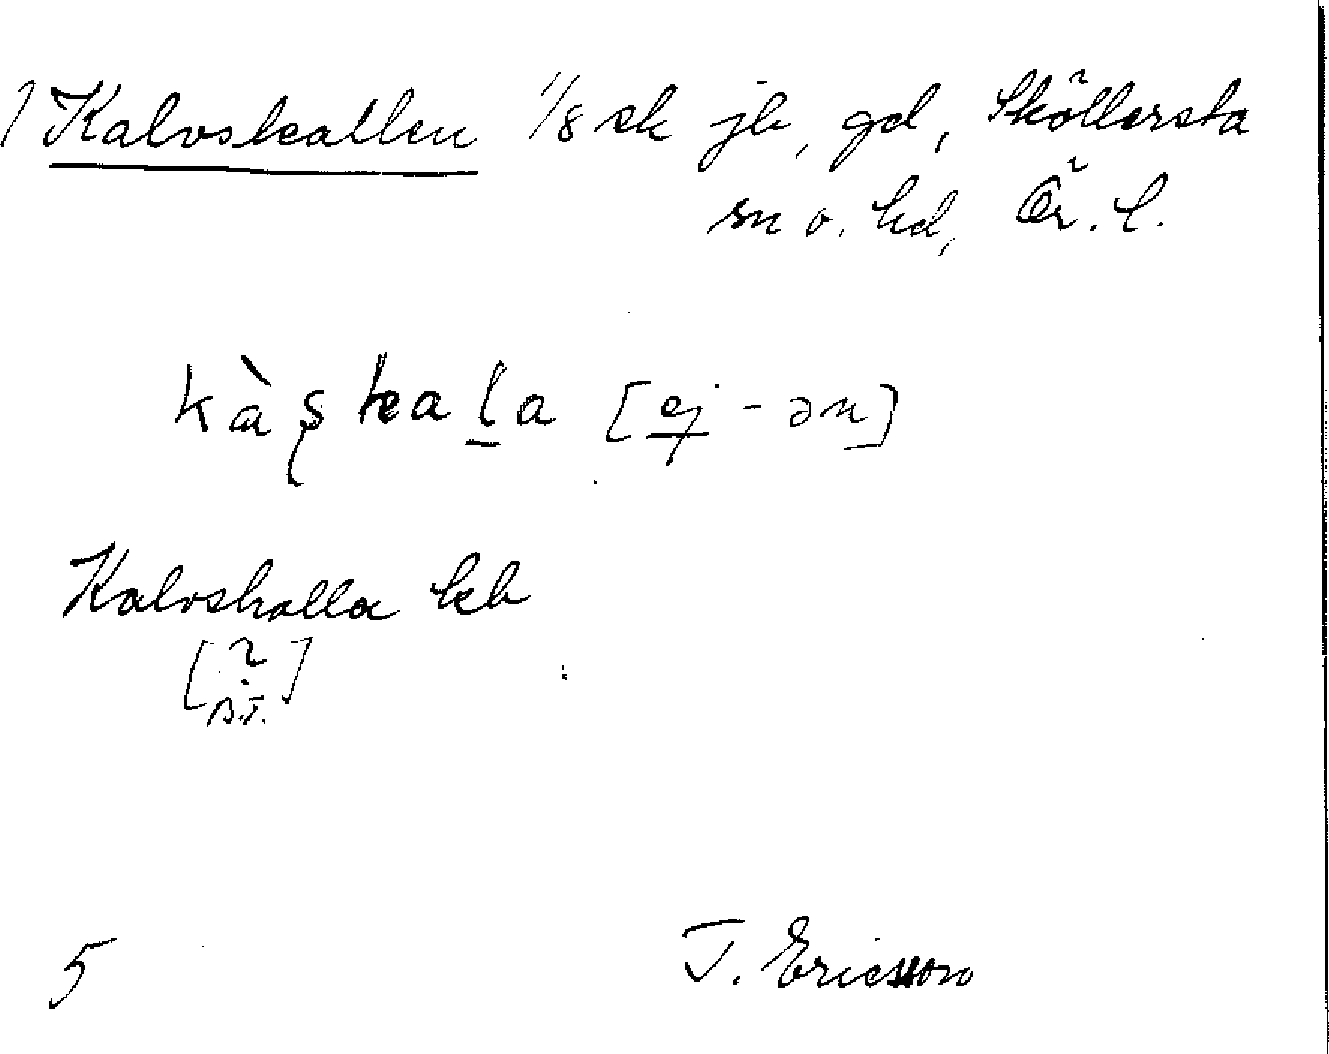 1 Kalvskallen 1/8 sk jb, gd, Sköllersta
sn o. hd, Ör. l.
kàʂkaḻa [ej -ən]
Kalvskalla kb
[?]
B.T.
5 T. Ericsson